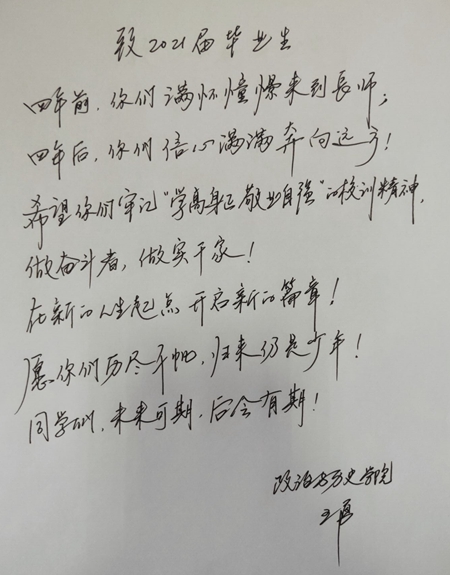 致2021届毕业生
四年前，你们满怀憧憬来到長师；
四年后，你们信心满满奔向远方！
希望你们牢记“学高身正 敬业自强”的校训精神，
做奋斗者，做实干家！
在新的人生起点开启新的篇章！
愿你们历尽千帆，归来仍是少年！
同学们，未来可期，后会有期！
政治与历史学院
王勇